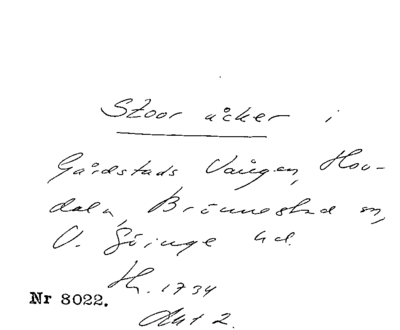 Stoor åcker i
Gårdstads Vången, Hov-
dala, Brönnestad sn,
V. Göinge hd.
Hr. 1734
Akt 2.
Nr 8022.